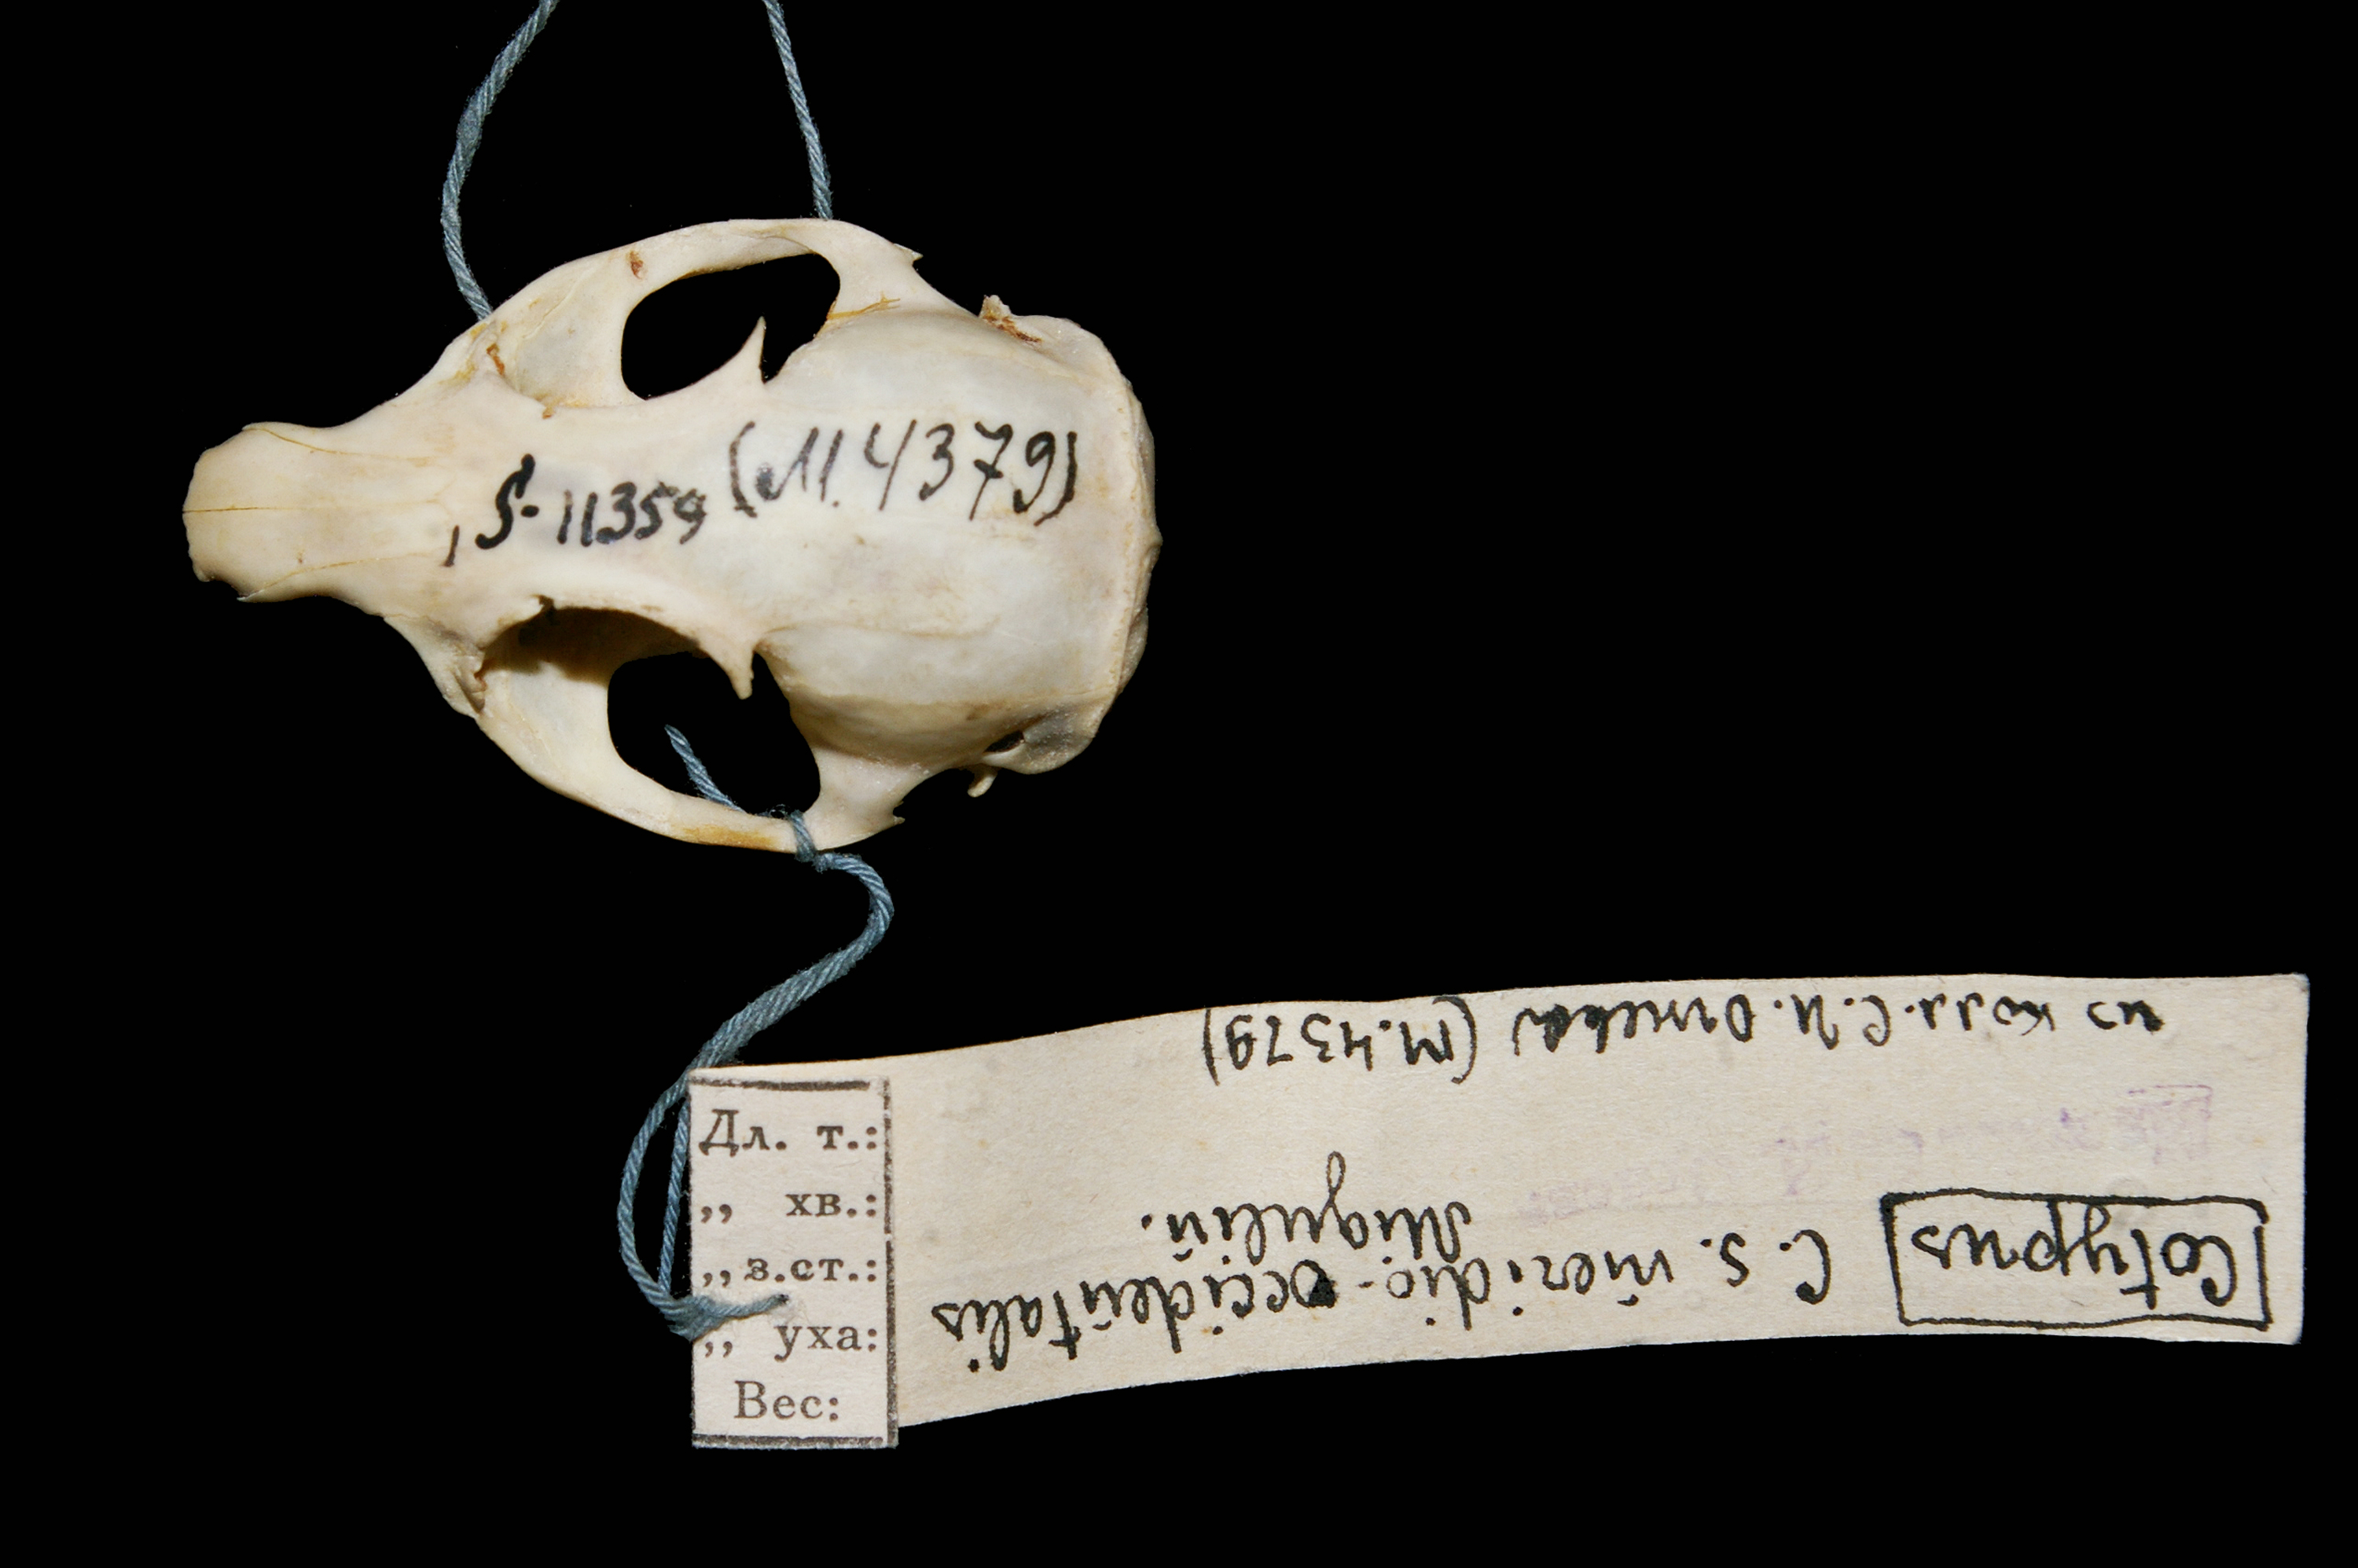 S-11359 (М.4379)
Дл. т.:
„ хв.:
„з.ст.:
„ уха:
Вес:
Cotypus C. s. meridio-occidentalis
Мигулин.
из колл. С.И. Огнева (М.4379)